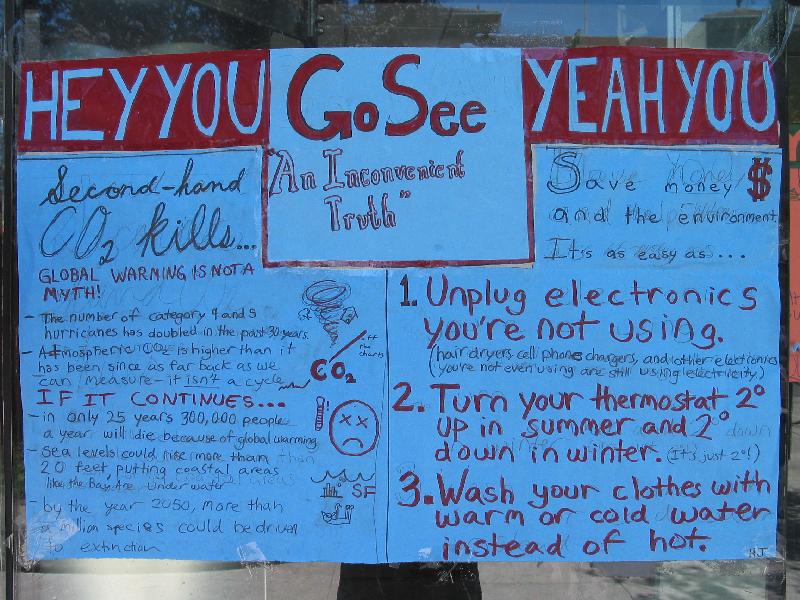 HEY YOU
Go See
"An Inconvenient
Truth"
YEAH YOU
Second-hand
CO2 kills...
GLOBAL WARMING IS NOT A
MYTH!
- The number of category 4 and 5
hurricanes has doubled in the past 30 years.
- Atmospheric CO2 is higher than it
has been since as far back as we
can measure - it isn't a cycle
off
the
charts
CO2
IF IT CONTINUES...
- in only 25 years 300,000 people
a year will die because of global warming
- Sea levels could rise more than
20 feet, putting coastal areas
like the Bay Area under water
SF
- by the year 2050, more than
a million species could be driven
to extinction
Save money $
and the environment
It's as easy as...
1. Unplug electronics
you're not using.
(hair dryers cell phone chargers, and other electronics
you're not even using are still using electricity)
2. Turn your thermostat 2°
up in summer and 2°
down in winter. (It's just 2°!)
3. Wash your clothes with
warm or cold water
instead of hot.